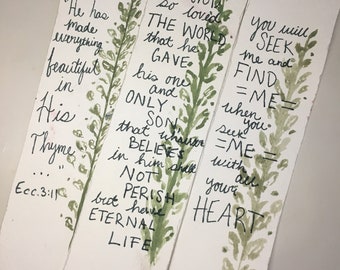 He has
made
everything
beautiful
in
His
Thyme
...
Ecc. 3:11
so loved
THE WORLD
that he
GAVE
his one
and
ONLY
SON
that whoever
BELIEVES
in him shall
NOT
PERISH
but have
ETERNAL
LIFE
you will
SEEK
me and
FIND
=ME=
when
you
seek
=ME=
with
all
your
HEART